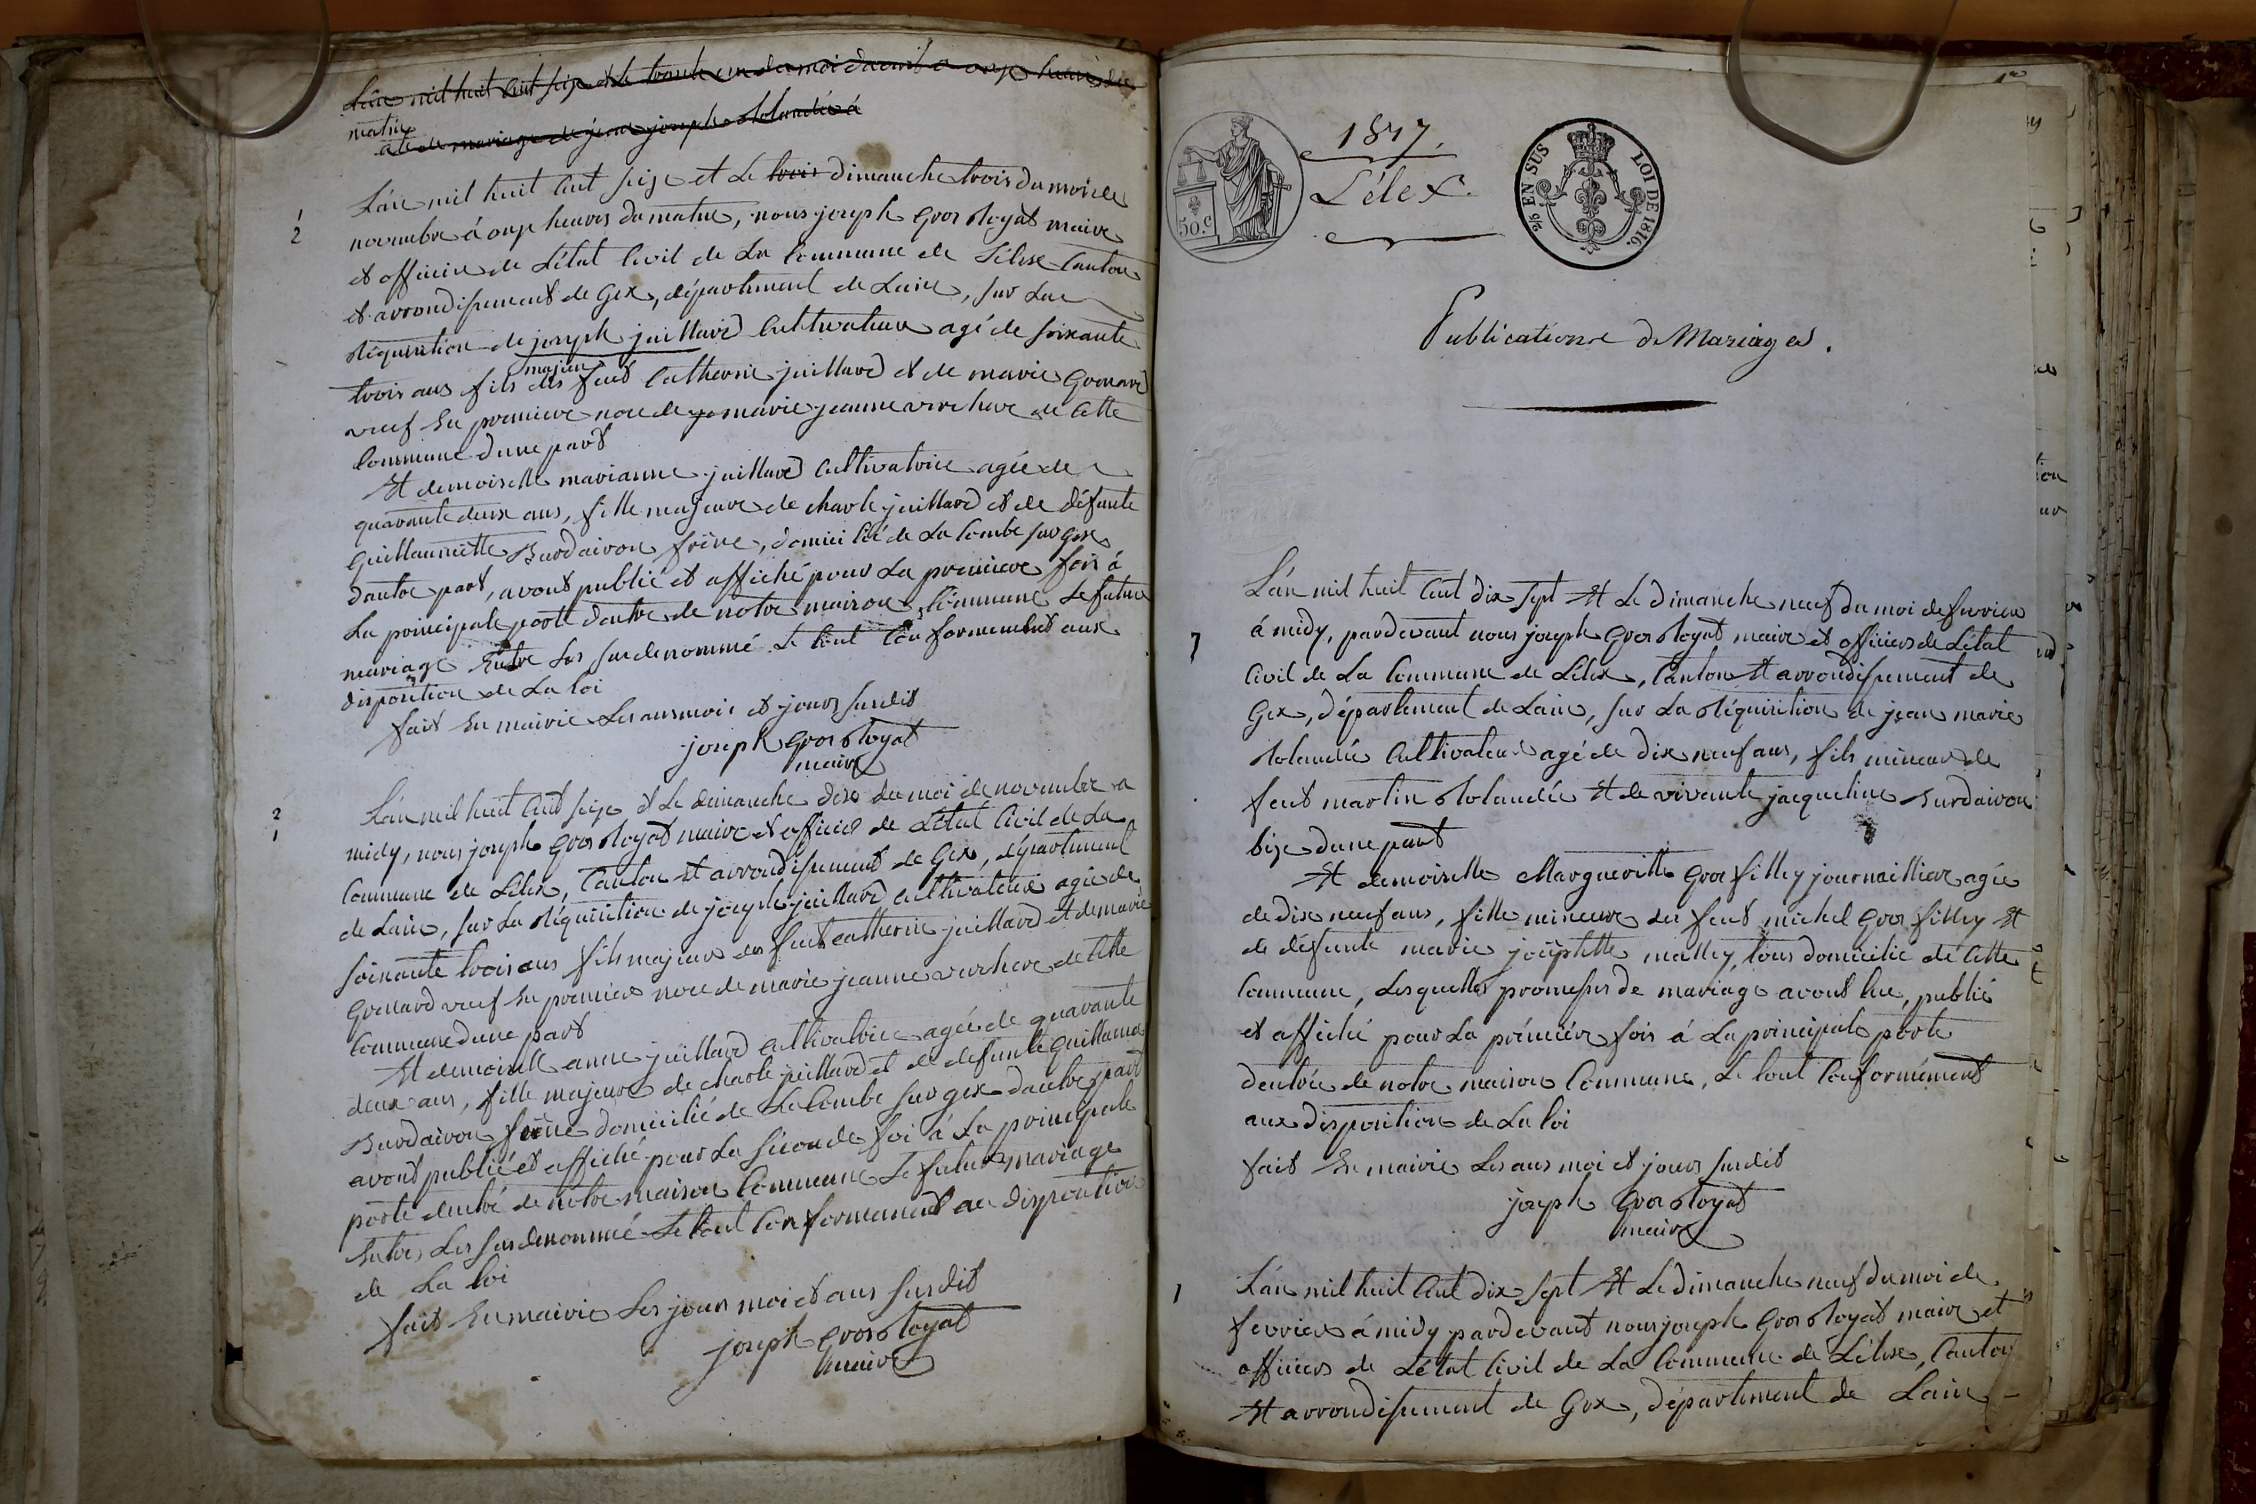 L'an mil huit cent seize et le trente un du moi daout a onze heure du
matin
acte de mariage de jean joseph Rolandée à
1
2
L'an mil huit cent seize et le trois dimanche trois du mois de
novembre à onze heures du matin, nous joseph Gros Royat maire
et officier de L'état Civil de La Commune de Lélex Canton
et arrondissement de Gex, département de Lain, sur La
Réquisition de joseph juillard Cultivateur agé de soixante
majeur
trois ans fils des feut Catherin juillard et de marie Gronard
veuf en premiere noce de marie jeanne de Cette
Commune d'une part
Et demoiselle marianne juillard Cultivatrice agée de
quarante deux ans, fille majeure de charle juillard et de défunte
Guillaumette Burdairon frène, domicilié de La Combe sur Gex
dautre part, avont publié et affiché pour La premiere fois à
La principale porte dentre de notre maison Commune Le futur
mariage Entre Les surdenommé Le tout Conformement aux
disposition de La loi
fait En mairie Les ans mois et jours susdit
joseph Gros Royat
maire
2
1
L'an mil huit Cent seize et Le dimanche dix du moi de novembre a
midy, nous joseph Gros Royat maire et officier de L'état Civil de La
Commune de Lélex, Canton et arrondissement de Gex, département
de Lain, sur La Réquisition de joseph juillard Cultivateur agée de
soixante trois ans fils majeur des feut Catherin juillard et de marie
Gronard veuf En premiere noce de marie jeanne de Cette
Commune d'une part
Et demoiselle anne juillard Cultivatrice agée de quarante
deux ans, fille majeure de charle juillard et de defunte Guillauma
Burdairon frène domicilié de La Combe sur gex dautre part
avont publié et affiché pour La seconde foi à La principale
porte dentré de notre maison Commune Le futur mariage
Entre Les surdenommé Le tout Conformement au disposition
de La loi
fait En mairie Les jours moi et ans susdit
joseph Gros Royat
maire
1817.
Lélex.
50.C
2/5 EN SUS LOI DE 1816.
Publications de Mariages.
1
L'an mil huit Cent dix sept Et Le dimanche neuf du moi de fevrier
à midy, pardevant nous joseph Gros Royat maire et officiers de L'état
Civil de La Commune de Lélex, Canton Et arrondissement de
Gex, département de Lain, sur La Réquisition de jean marie
Rolandée Cultivateur agé de dix neuf ans, fils mineur de
feut martin Rolandée Et de vivante jacqueline Burdairon
bize d'une part
Et demoiselle Margueritte Gros filley journaillière agée
de dix neuf ans, fille mineure des feut michel Gros filley Et
de défunte marie josephtte malley, tous domicilié de Cette
Commune, Lesquelles promesses de mariage avont lue, publié
et affiché pour La prémière fois à La principale porte
dentrée de notre maison Commune, Le tout Conformément
aux disposition de La loi
fait En mairie Les ans moi et jours susdit
joseph Gros Royat
maire
1
L'an mil huit Cent dix sept Et Le dimanche neuf du moi de
fevrier à midy pardevant nous joseph Gros Royat maire et
officiers de L'état Civil de La Commune de Lélex, Canton
Et arrondissement de Gex, département de Lain